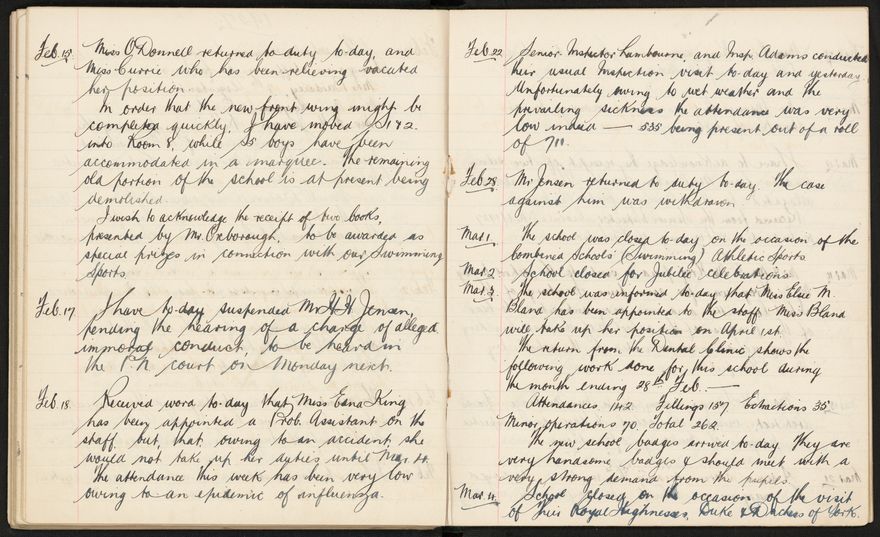 Feb. 15. Miss O'Donnell returned to duty to-day, and
Miss Currie who has been relieving vacated
her position.
In order that the new front wing might be
completed quickly, I have moved S 1 & 2.
into Room 8, while 55 boys have been
accommodated in a marquee. The remaining
old portion of the school is at present being
demolished.
I wish to acknowledge the receipt of two books,
presented by Mr. Oxborough, to be awarded as
special prizes in connection with our Swimming
Sports
Feb. 17 I have to-day suspended Mr. H. H. Jensen,
pending the hearing of a charge of alleged
immoral conduct, to be heard in
the P.N. court on Monday next.
Feb. 18. Received word to-day that Miss Edna King
has been appointed a Prob. Assistant on the
staff, but, that owing to an accident, she
would not take up her duties until Mar.
The attendance this week has been very low
owing to an epidemic of influenza.
Feb. 22 Senior Inspector Lambourne, and Insp. Adams conducted
their usual Inspection visit to-day and yesterday.
Unfortunately owing to wet weather and the
prevailing sickness the attendance was very
low indeed — 535 being present out of a roll
of 711.
Feb. 28 Mr. Jensen returned to duty to-day. The case
against him was withdrawn.
Mar. 1. The school was closed to-day on the occasion of the
Combined Schools' (Swimming) Athletic Sports
Mar. 2 School closed for Jubilee celebrations
Mar. 3 The school was informed to-day that Miss Elsie M.
Bland has been appointed to the staff. Miss Bland
will take up her position on April 1st.
The return from the Dental Clinic shows the
following work done for this school during
the month ending 28th Feb. —
Attendances 142 Fillings 157 Extractions 35
Minor operations 70. Total 262.
The new school badges arrived to-day. They are
very handsome badges & should meet with a
very strong demand from the pupils.
Mar. 4. School closed on the occasion of the visit
of their Royal Highnesses, Duke & Duchess of York.